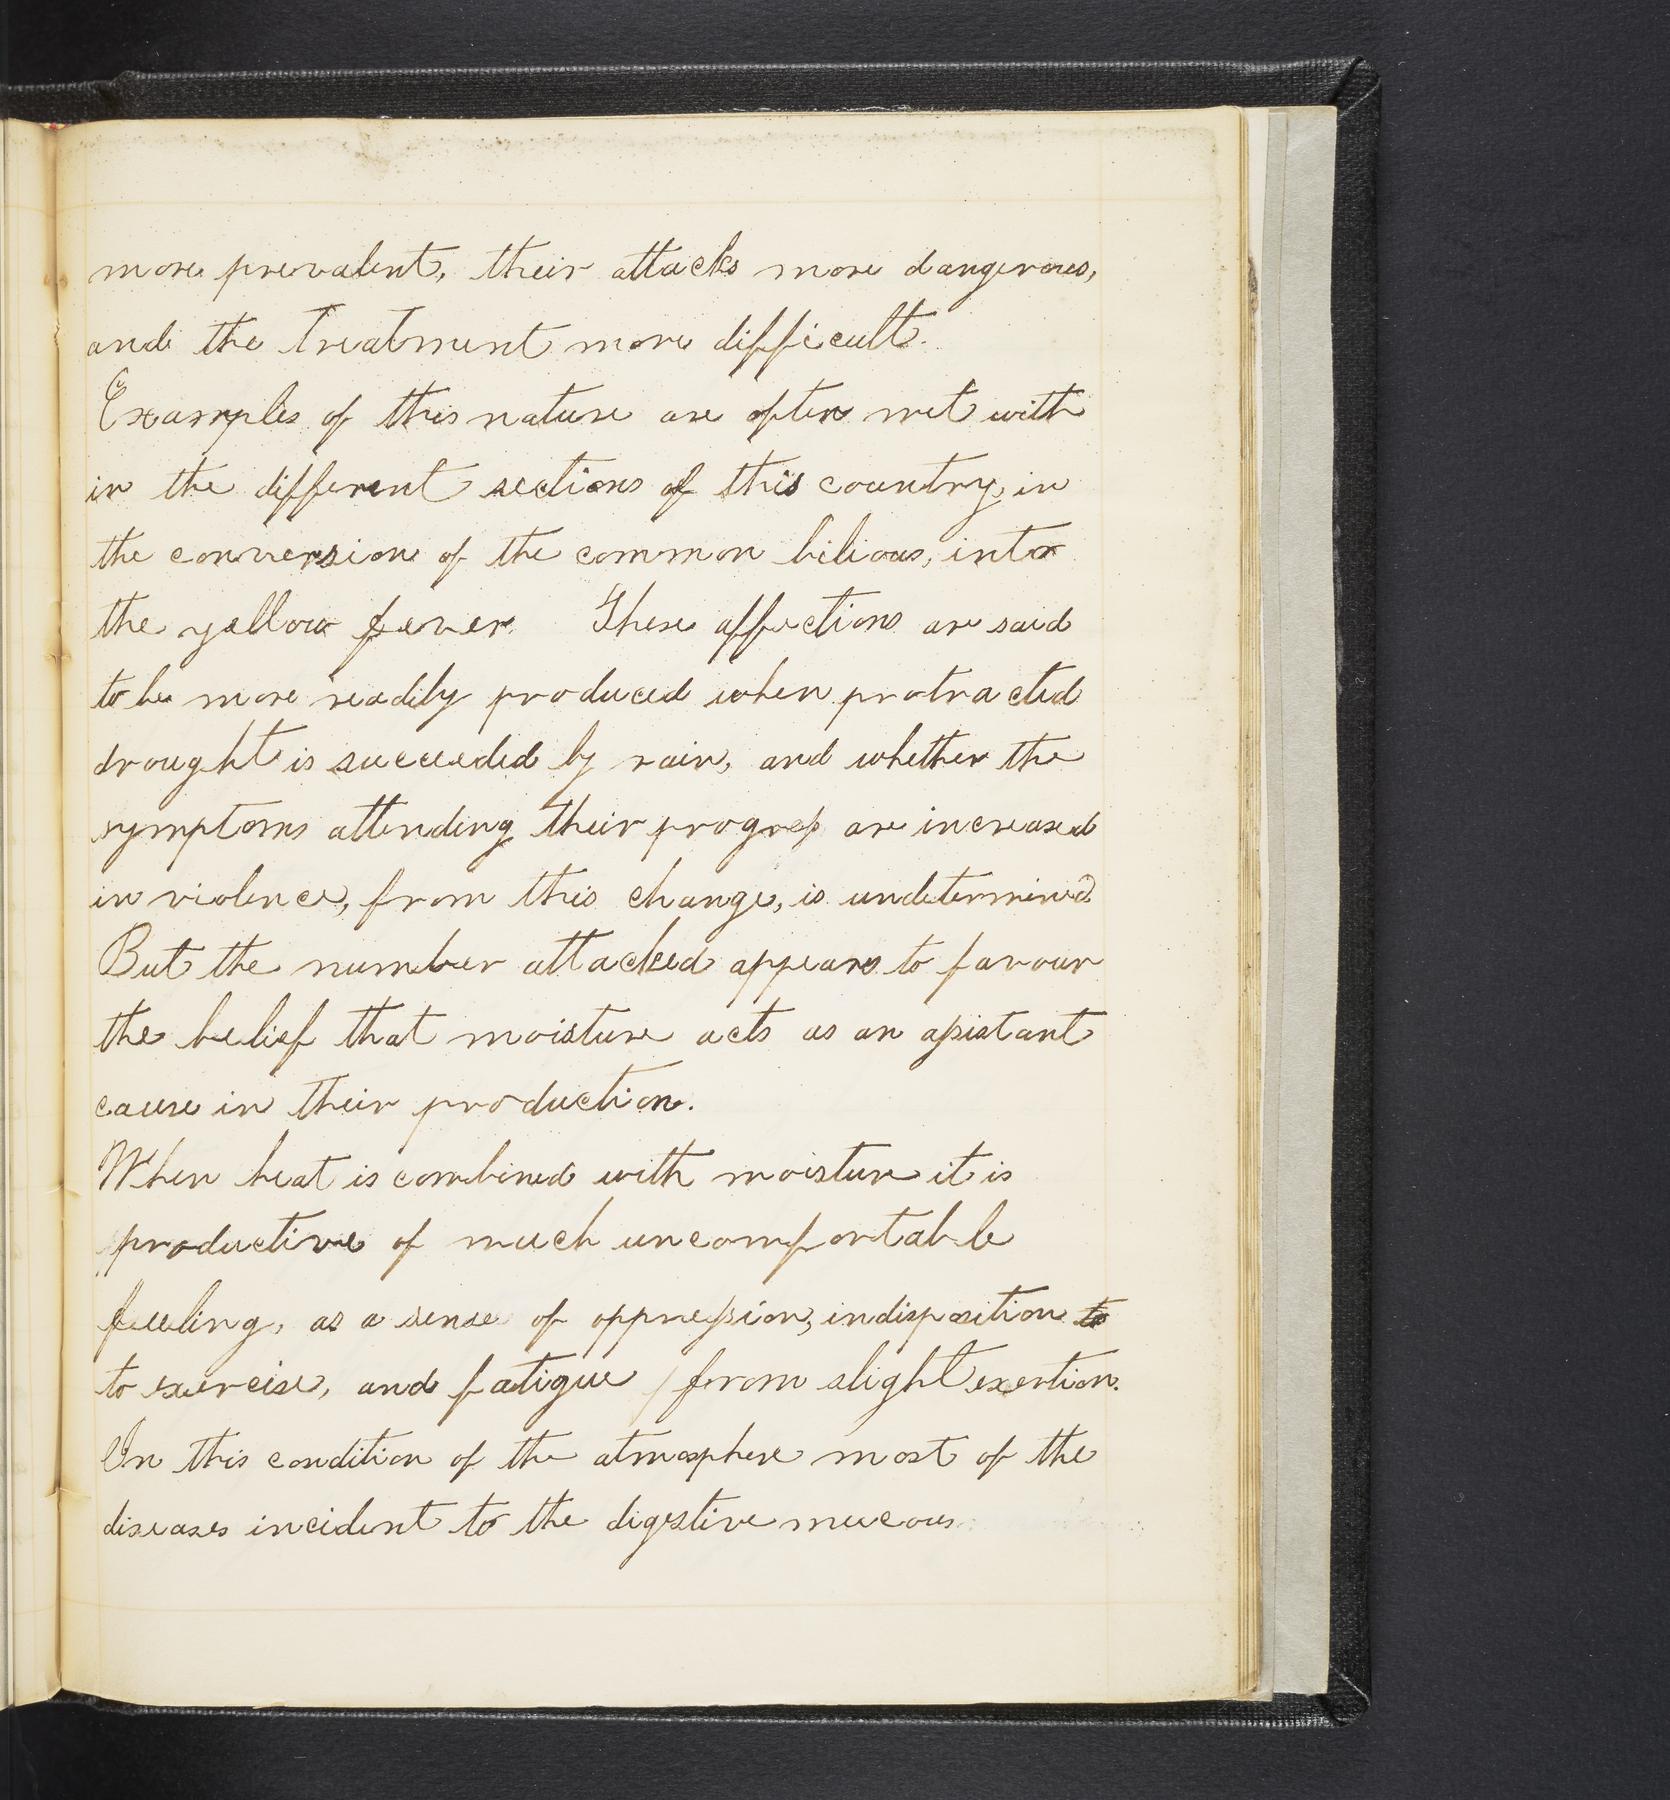 more prevalent, their attacks more dangerous,
and the Treatment more difficult.
Examples of this nature are often met with
in the different sections of this country, in
the conversion of the common bilious, into
the yellow fever. These affections are said
to be more readily produced when protracted
drought is succeeded by rain, and whether the
symptoms attending their progress are increased
in violence, from this change, is undetermined
But the number attacked appears to favour
the belief that moisture acts as an assistant
cause in their production.
When heat is combined with moisture it is
productive of much uncomfortable
feeling, as a sense of oppression, indisposition to
to exercise, and fatigue from slight exertion.
In this condition of the atmosphere most of the
diseases incident to the digestive mucous